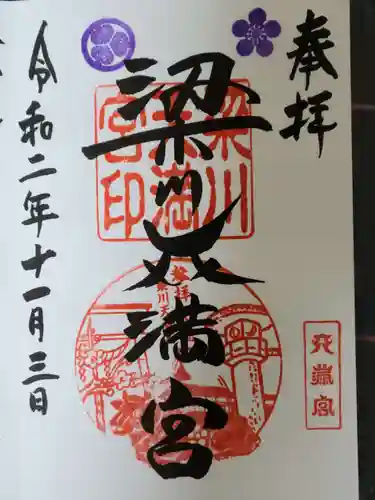 奉拝
梁川天満宮
令和二年十一月三日
梁川
天満
宮印
奉拝
梁川天
天満宮